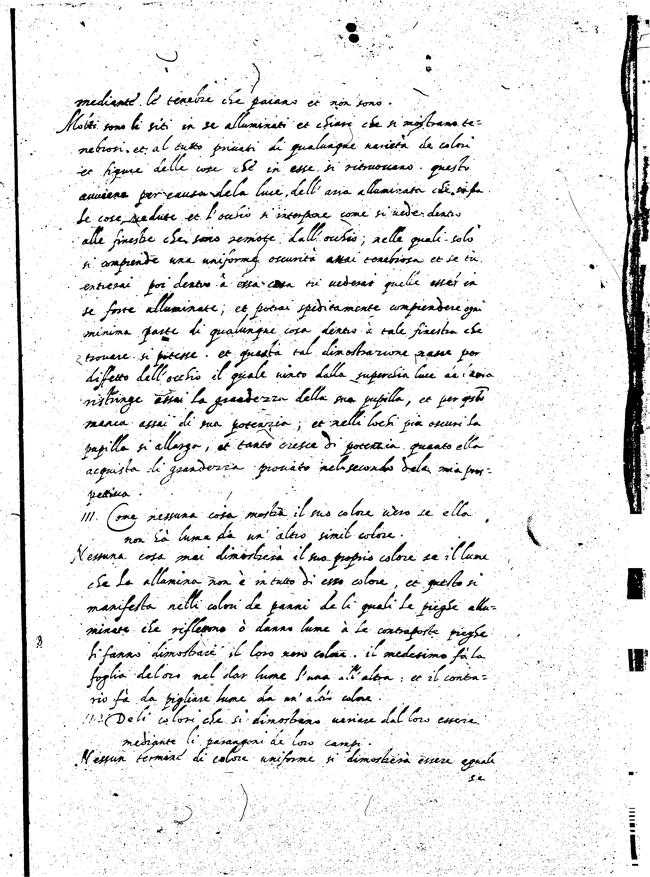 mediante le tenebre che paiano et non sono.
Molti sono li siti in se alluminati et chiari che si mostrano te=
nebrosi et al tutto privati di qualunque varietà de colori
et figure delle cose che in esse si ritrovano. questo
avviene per causa dela luce dell'aria alluminata che infra
le cose vedute et l'occhio si interpone come si vede dentro
alle finestre che sono remote dall'occhio, nelle quali solo
si comprende una uniforme oscurità assai tenebrosa et se tu
entrerai poi dentro à essa casa tu vederai quelle esser in
se forte alluminate; et potrai speditamente comprendere ogni
minima parte di qualunque cosa dentro à tale finestra che
trovare si potesse. et questa tal dimostrazione nasce per
diffetto dell'occhio il quale vinto dalla superchia luce de l'aria
ristringe assai la grandezza della sua pupilla, et per questo
manca assai di sua potenzia; et nelli lochi più oscuri la
pupilla si allarga, et tanto cresce di potenzia quanto ella
acquista di grandezza provato nel secondo dela mia pros-
pettiva.
III. Come nessuna cosa mostra il suo colore vero se ella
non hà lume da un'altro simil colore.
Nessuna cosa mai dimostrerà il suo proprio colore se il lume
che la allumina non è in tutto di esso colore, et questo si
manifesta nelli colori de panni de li quali le pieghe allu-
minate che riflettono ò danno lume à le contraposte pieghe
li fanno dimostrare il loro vero colore. il medesimo fà la
foglia de loro nel dar lume l'una all'altra: et il contra-
rio fà da pigliare lume da un'altro colore.
Deli colori che si dimostrano variare dal loro essere
mediante li paragoni de loro campi.
Nessun termine di colore uniforme si dimostrerà essere eguale
se